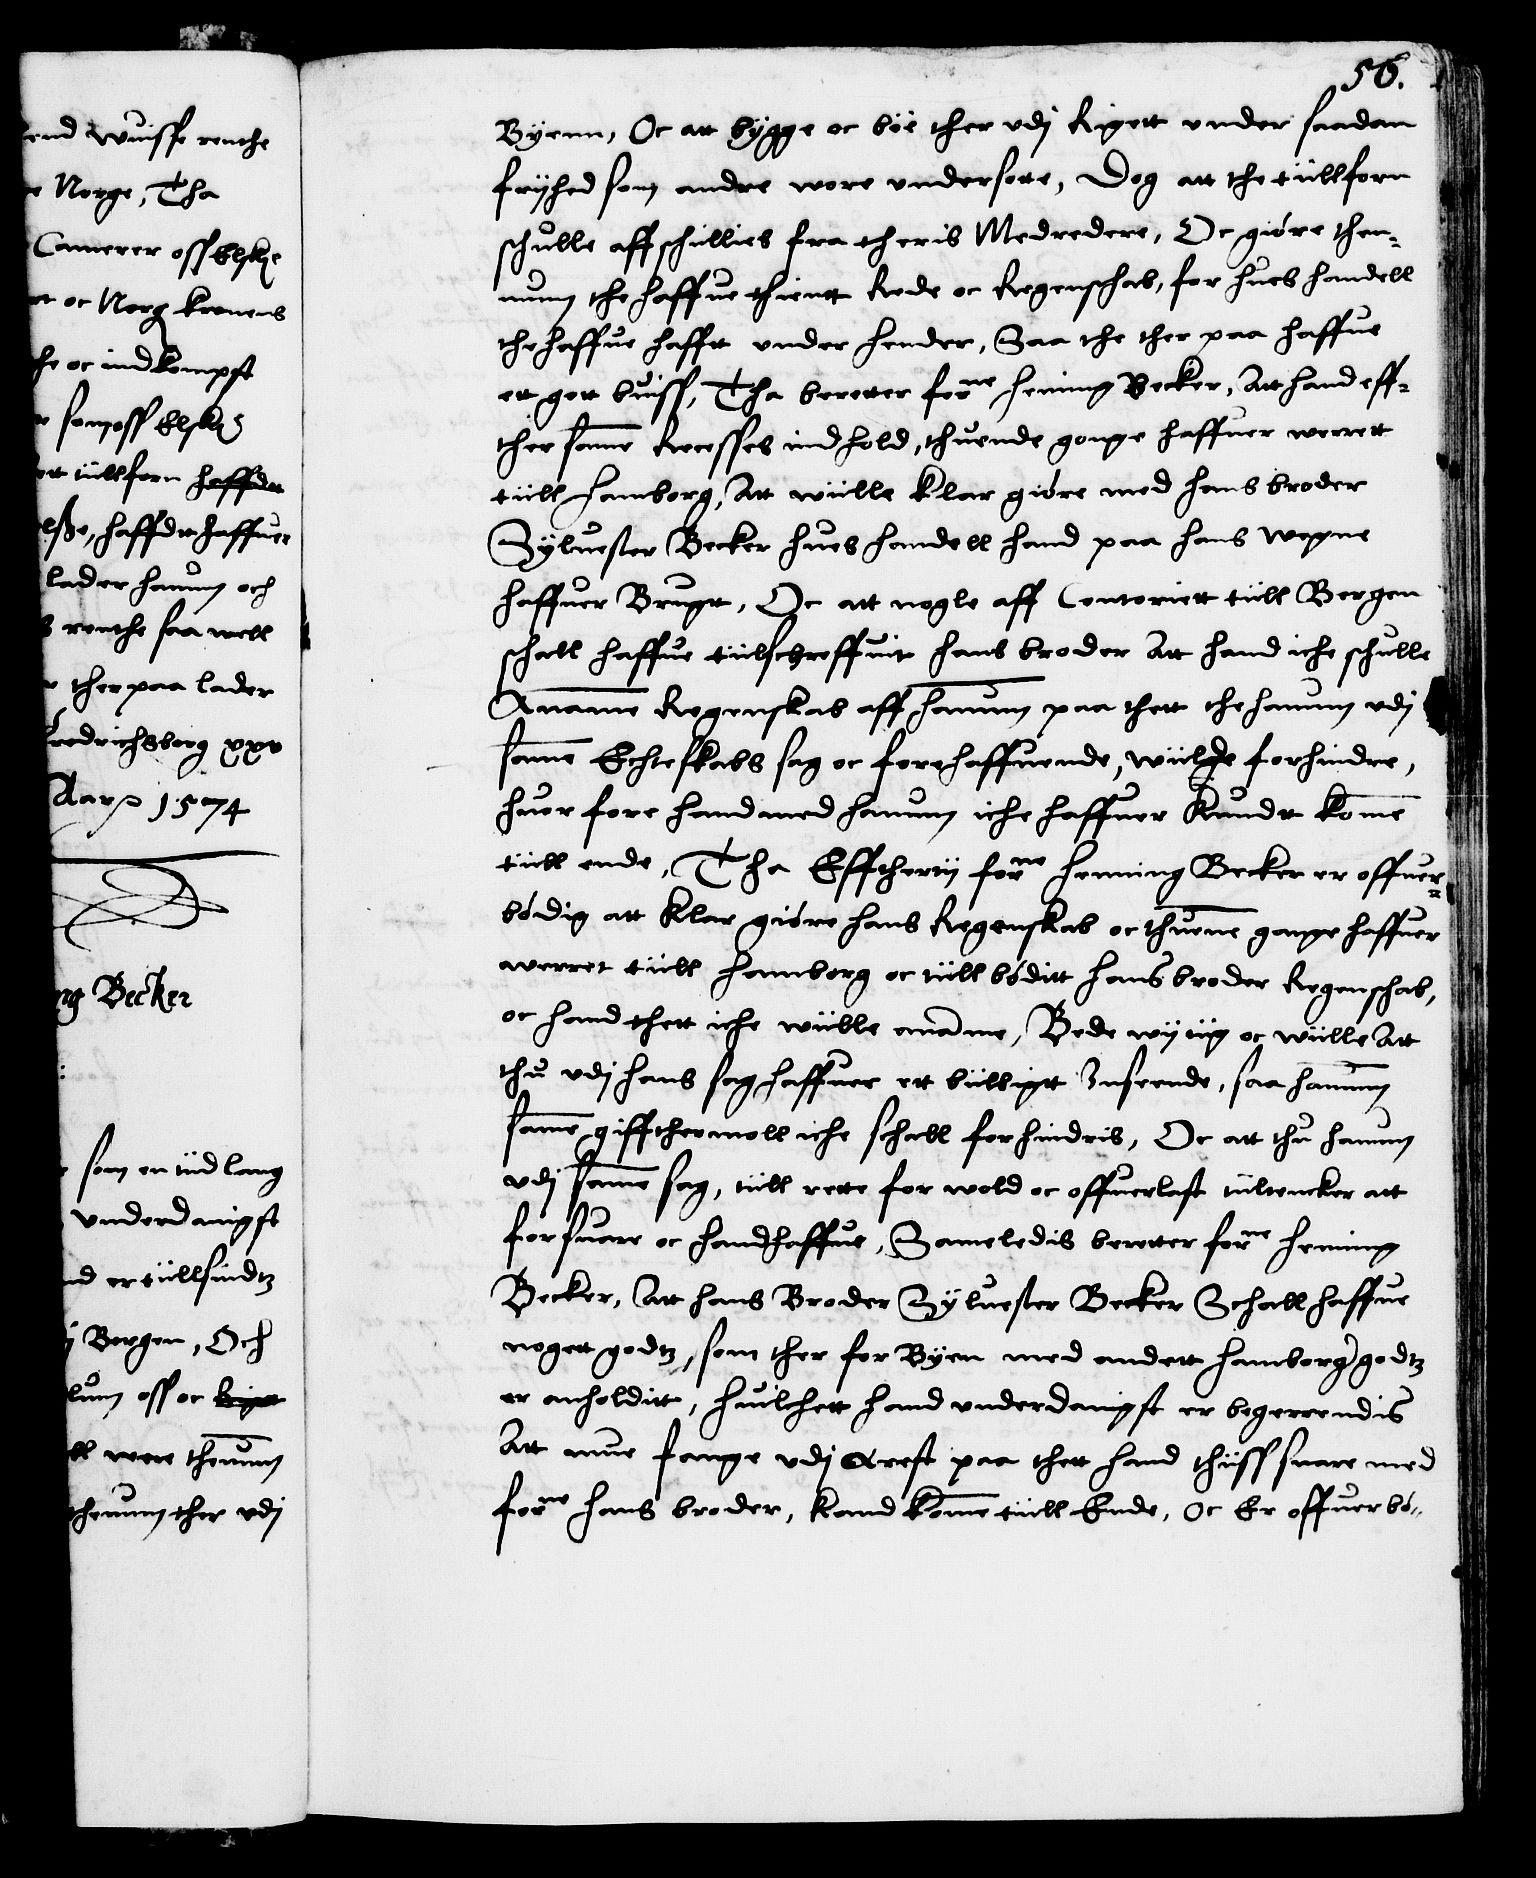 end wuisse renthe
e Norge, Tha
Camerer oss Elske
et oc Norg kronens
he oc indkompst
r som oss Elske
ett tiillforn haffdt
elsse, haffdt haffuer
lader hanum och
s renthe saa well
r ther paa lader
fredrichsborg xxv
Aars 1574
ng Becker
som en tiid lang
underdanigst
nd er tiillsindtz
ij Bergen, Och
lum oss oc riigett
ll were thenum
thenum ther vdj
56.
Byenn, Oc att bygge oc boe ther vdj Rigett under saadan
fryhed som andre wore undersotte, Dog att the tiillforn
schulle affschillies fra theris Medredere, Oc giøre then-
num the haffue thientt Rede oc Regenschab, for hues handell
the haffue hafft under hender, Saa the ther paa haffue
ett gott buiss, Tha beretter forne Hening Becker, Att hand eff-
ther same Recesses indhold, thuende gonge haffuer werrett
tiill Hamborg, Att wiille klar giøre med hans broder
Syluester Becker hues handell hand paa hans wegne
haffuer Brugtt, Oc att nogle aff Contoriett tiill Bergen
schall haffue tiilschreffuit hans broder Att hand iche schulle
Aname Regenskab aff hanum paa thett the hanum vdj
same Echteskabs sag oc forehaffuende, wiille forhindre,
huor fore hand med hanum iche haffuer Kundt kome
tiill ende, Tha Effthertij forne Henning Becker er offuer-
bødig att klar giøre hans Regenskab oc thuene gange haffuer
werret tiill Hamborg oc tiillbøditt hans broder Regenschab,
oc hand thett iche wiille aname, Bede wij tiig oc wiille Att
thu vdj hans sag haffuer ett biilligtt Indseende, saa hanum
same giffthermoll iche schall forhindris, Oc att thu hanum
vdj same sag, tiill rette for wold oc offuerlast tiiltencker att
forsuare oc handhaffue, Sameledis beretter forne Hening
Becker, Att hans Broder Syluester Becker Schall haffue
nogett godtz, som ther for Byen med andett hamborger godtz
er anholditt, huilchett hand underdanigst er begerrendis
Att mue fange vdj Arrest paa thett hand thiiss snare med
forne hans broder, kand kome tiill Ende, Oc Er offuerbø-